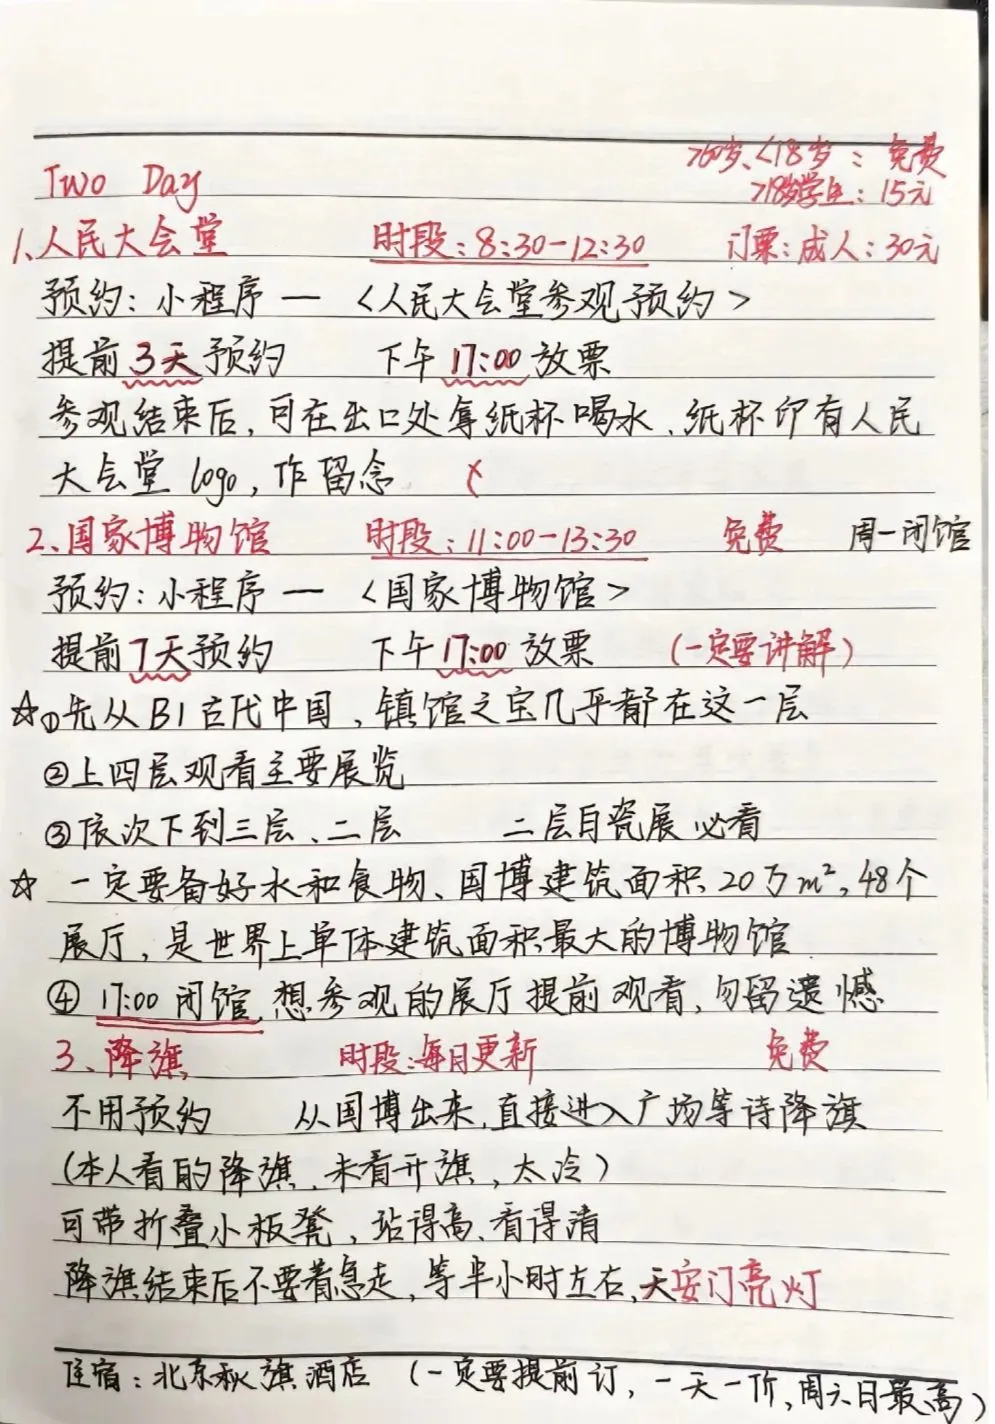 >60岁、<18岁：免费
Two Day
>18岁学生：15元
1、人民大会堂 时段：8:30-12:30 门票：成人：30元
预约：小程序一 <人民大会堂参观预约>
提前3天预约 下午17:00放票
参观结束后，可在出口处拿纸杯喝水、纸杯印有人民
大会堂 logo，作留念
2、国家博物馆 时段：11:00-13:30 免费 周一闭馆
预约：小程序一 <国家博物馆>
提前7天预约 下午17:00放票 (一定要讲解)
☆①先从B1古代中国，镇馆之宝几乎都在这一层
②上四层观看主要展览
③依次下到三层、二层 二层自瓷展必看
☆ 一定要备好水和食物、国博建筑面积20万m²，48个
展厅，是世界上单体建筑面积最大的博物馆
④ 17:00闭馆，想参观的展厅提前观看，勿留遗憾
3、降旗 时段：每日更新 免费
不用预约 从国博出来，直接进入广场等待降旗
(本人看的降旗，未看升旗，太冷)
可带折叠小板凳，站得高、看得清
降旗结束后不要着急走，等半小时左右，天安门亮灯
住宿：北京秋旗酒店 (一定要提前订，一天一价，周六日最高)